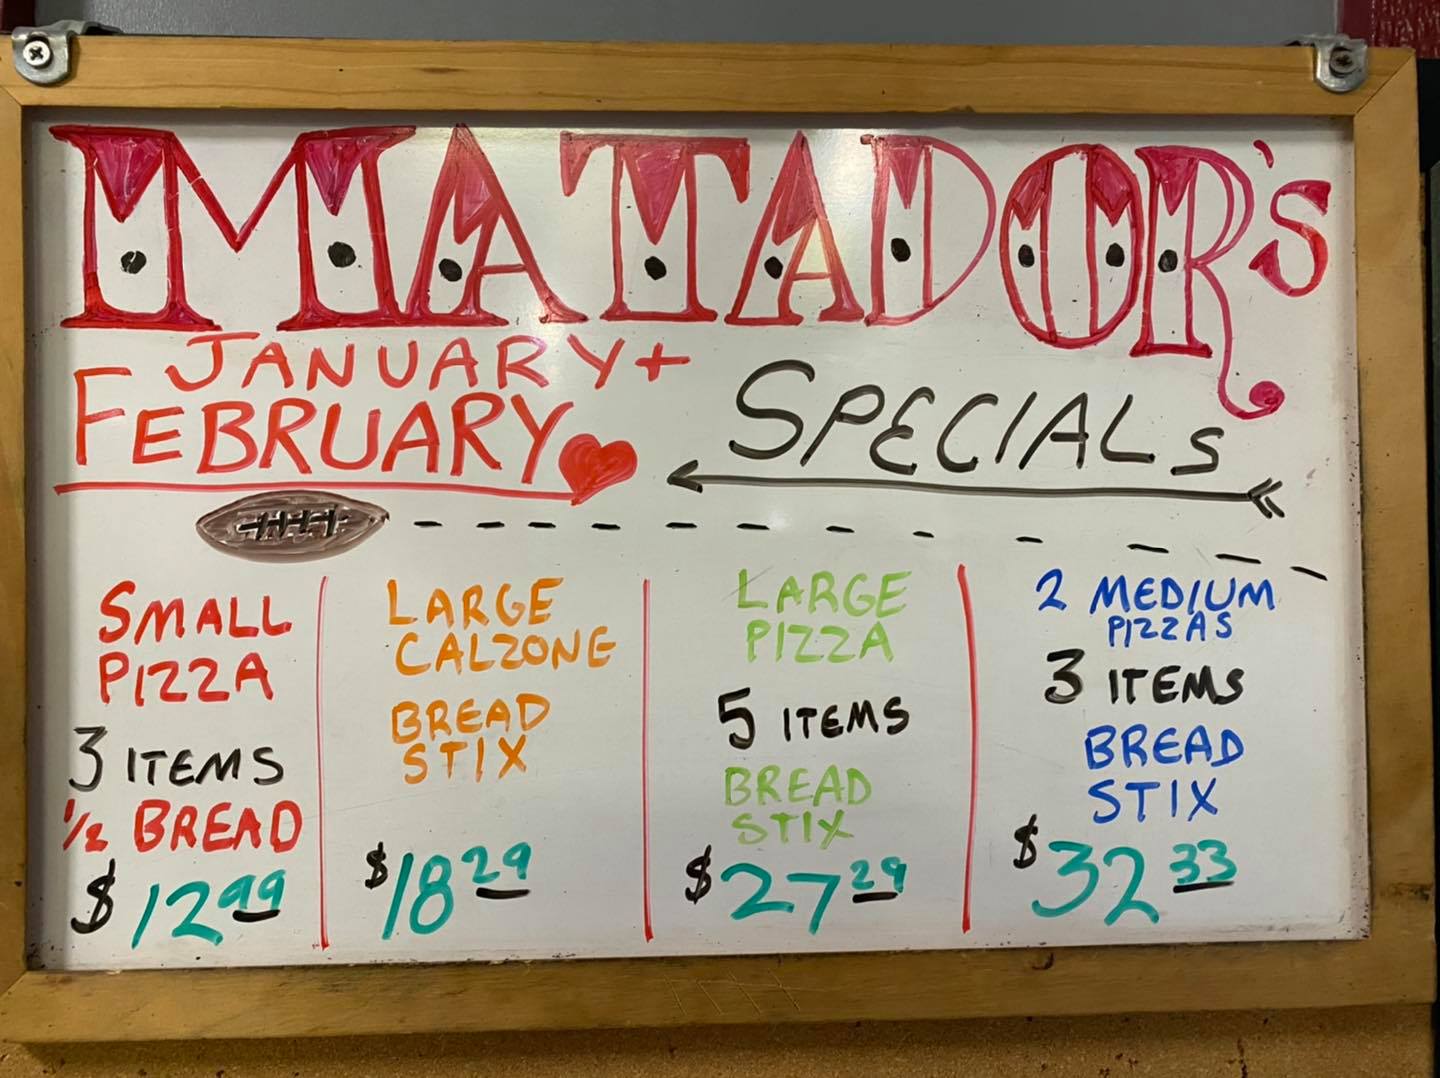 MATADOR's
JANUARY +
FEBRUARY
SPECIALS
SMALL
PIZZA
3 ITEMS
1/2 BREAD
$12.99
LARGE
CALZONE
BREAD
STIX
$18.29
LARGE
PIZZA
5 ITEMS
BREAD
STIX
$27.29
2 MEDIUM
PIZZAS
3 ITEMS
BREAD
STIX
$32.33